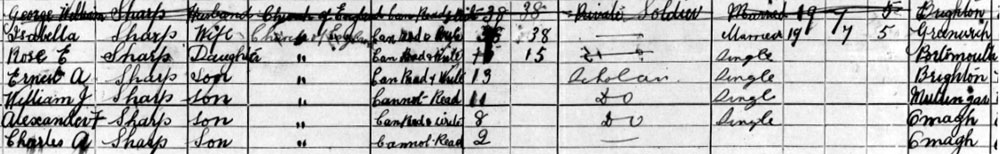 George William Sharp Husband Church of England Can Read & 38 38 Private Soldier Married 19 7 5 Brighton
Isabella Sharp Wife Church of England Can Read & Write 38 38 — Married 19 7 5 Greenwich
Rose E Sharp Daughter " Can Read & Write 15 Single Portsmouth
Ernest A Sharp Son " Can Read & Write 13 Scholar Single Brighton
William J Sharp Son " Cannot Read 11 Do Single Mullingar
Alexander F Sharp Son " Can Read & Write 8 Do Single Omagh
Charles A Sharp Son " Cannot Read 2 — Omagh